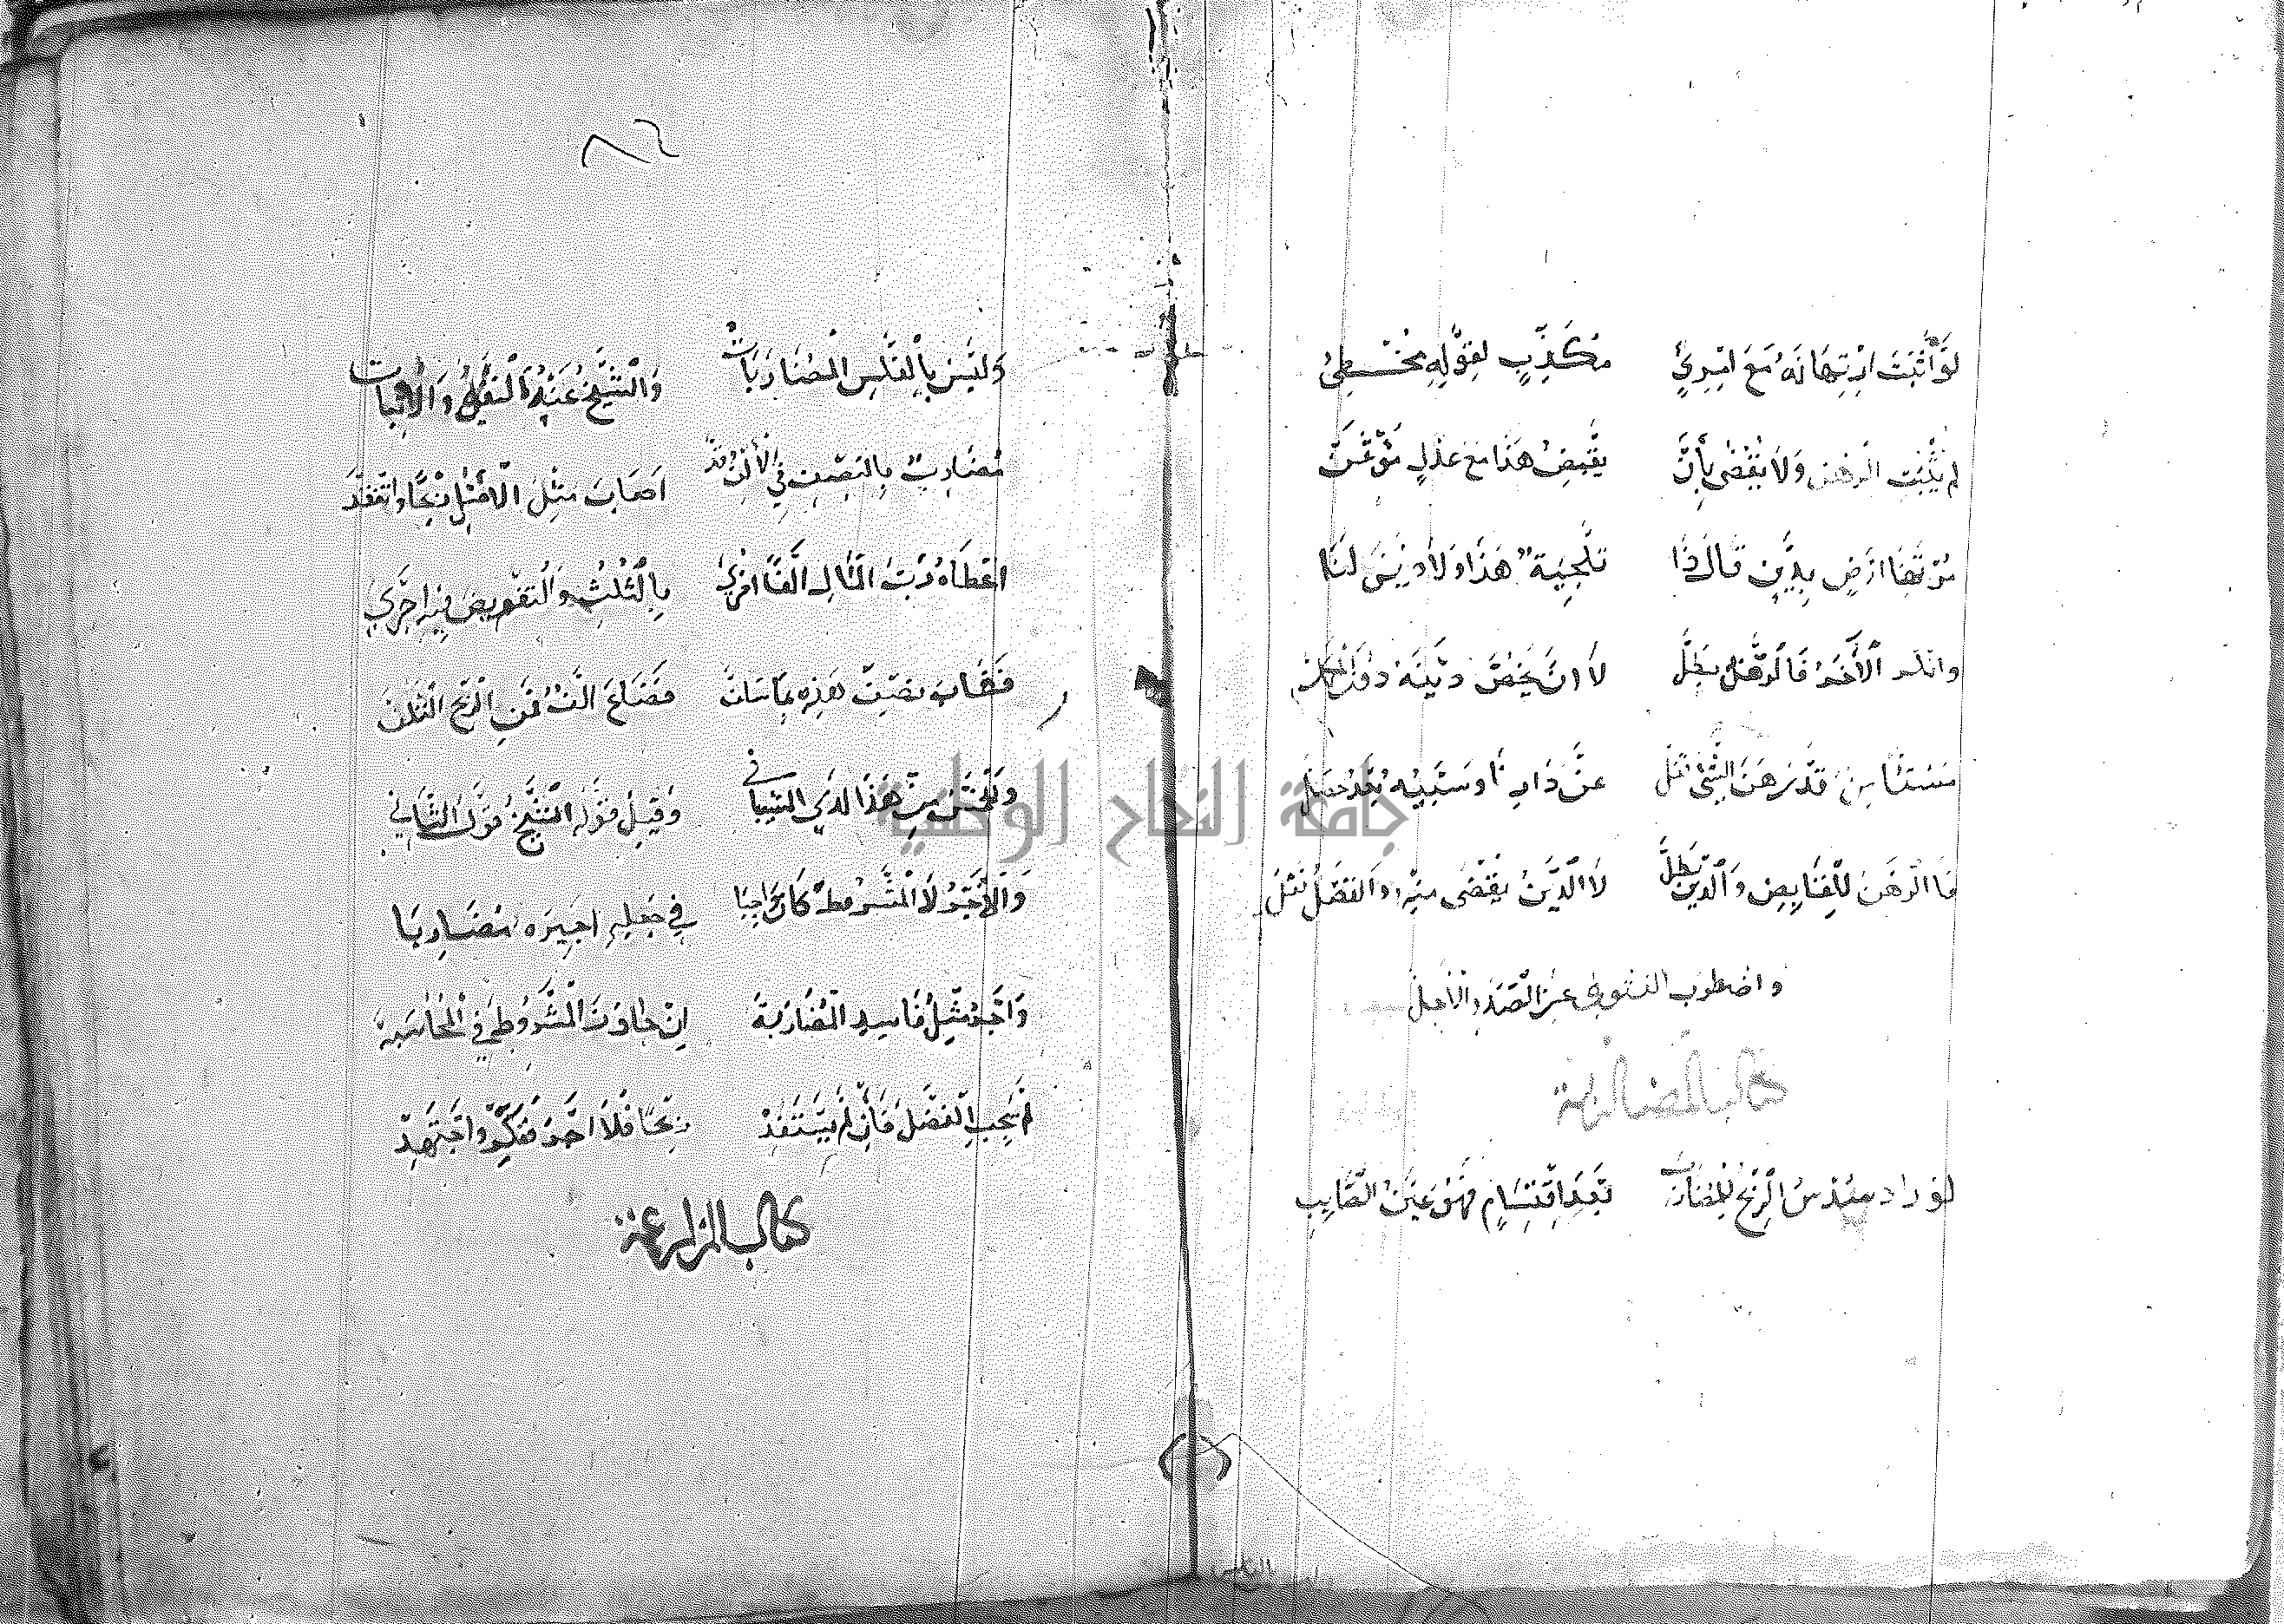 لَوْ أَثْبَتَ ارْتِهَانَهُ مَعَ امْرِئٍ مُكَذِّبٍ لِقَوْلِهِ مُخْطِئِ
لم يَثْبُتِ الرهن وَلَا يُقْضَى بِأَنْ يَقْبِضُ هَذَا مَعَ عَدْلٍ مُؤْتَمَنْ
مُرْتَهِنَا ارْضٍ بِدَيْنٍ قَالَ ذَا تَلْجِيَةٌ هَذَا وَلَا دَيْنَ لَنَا
وانكر الْأَخَرُ فَالرَّهْنُ بَطَلْ لَا انْ يَخُصَّ دَيْنَهُ دُونَ
قَدْ رَهَنَ الشَّىْ عَنْ
فَالرَّهْنُ لِلْقَابِضِ وَالدَّيْنُ بَطَلْ لَا الدَّيْنُ يُقْضَى مِنْهُ وَالفَضْلُ
واضطرب النسفي عن الصدر الأجل
كتاب المضاربة
لو زاد من الرِّبْحَ لِلْمُضَارِبِ بَعْدَ اقْتِسَامٍ فَهْوَ عَيْنُ الصَّايِبِ
٨٢
وَلَيْسَ بِالْفَلْسِ الْمُضَارَبَاتُ وَالشَّيْخُ عَنْهُ النَّفْيُ وَالْإِثْبَاتُ
مُضَارِبٌ بِالنِّصْفِ فِي الْأَلْفِ وَقَدْ اصَابَ مِثْلَ الْاصْلِ رِبْحًا وَانْتَقَدْ
اعْطَاهُ رَبُّ الْمَالِ الْفًا اخْرَى بِالثُّلْثِ وَالتَّفْوِيضُ فِيهِ اجْرَى
فَشَابَ نِصْفَ هَذِهِ بِمَا سَلَفْ فَضَاعَ الْفٌ فَمِنَ الرِّبْحِ التَّلَفْ
هَذَا لَدَى الشيباني وَقِيلَ قَوْلُ الشَّيْخُ قَوْلُ الثَّانِي
وَالْأَجْرُ لَا الْمَشْرُوطُ كَانَ وَاجِبَا فِي جَعْلِهِ اجِيرَهُ مُضَارِبَا
وَأَجْرُ مِثْلٍ فَاسِدِ الْمُضَارَبَهْ انْ جَاوَزَ الْمَشْرُوطَ فِي الْمُحَاسَبَهْ
لَمْ يَجِبِ الْفَضْلُ فَأِنْ لَمْ يَسْتَفِدْ رِبْحًا فَلَا اجْرَ فَفَكِّرْ وَاجْتَهِدْ
كتاب المزارعة
جامعة النجاح الوطنية